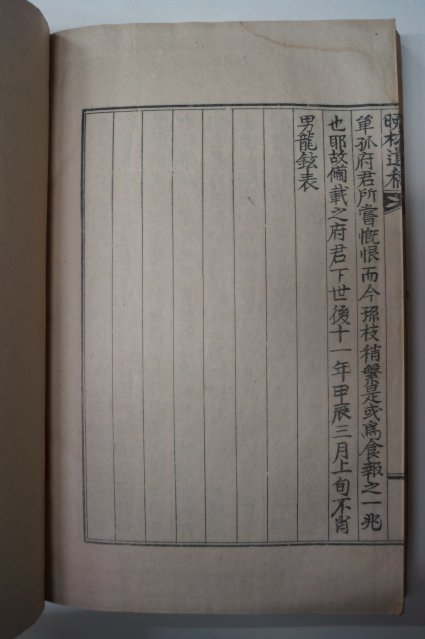 晩松遺稿
單孤府君所嘗慨恨而今孫枝稍盤是或爲食報之一兆
也耶故備載之府君下世後十一年甲辰三月上旬不肖
男龍鉉表